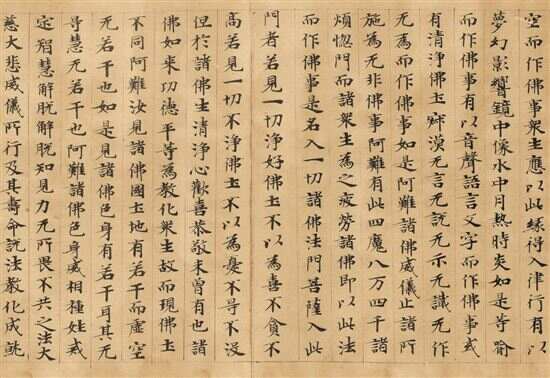 空而作佛事衆生應以此緣得入律行有以
夢幻影響鏡中像水中月熱時炎如是等喻
而作佛事有以音聲語言文字而作佛事或
有清淨佛土寂漠无言无說无示无識无作
无為而作佛事如是阿難諸佛威儀止諸所
施為无非佛事阿難有此四魔八万四千諸
煩惱門而諸衆生為之疲勞諸佛即以此法
而作佛事是名入一切諸佛法門菩薩入此
門者若見一切淨好佛土不以為喜不貪不
高若見一切不淨佛土不以為憂不导不沒
但於諸佛生清淨心歡喜恭敬未曾有也諸
佛如來功德平等為教化衆生故而現佛土
不同阿難汝見諸佛國土地有若干而虛空
无若干也如是見諸佛色身有若干耳其无
导慧无若干也阿難諸佛色身威相種姓戒
定智慧解脫解脫知見力无所畏不共之法大
慈大悲威儀所行及其壽命說法教化成